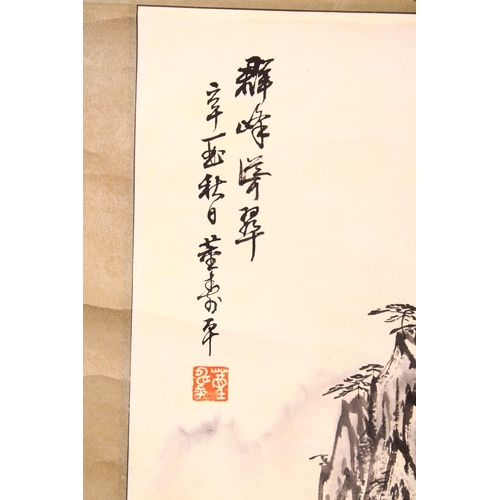 群峰滴翠
辛酉秋日董寿平
董壽平